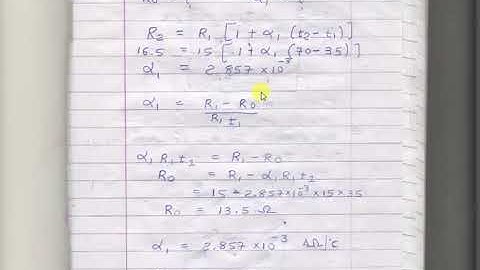 R₂ = R₁ [1 + α₁ (t₂-t₁)]
16.5 = 15 [1 + α₁ (70-35)]
α₁ = 2.857 ×10⁻³
α₁ = R₁ - R₀
R₁ t₁
α₁ R₁ t₁ = R₁ - R₀
R₀ = R₁ - α₁ R₁ t₁
= 15 - 2.857×10⁻³×15×35
R₀ = 13.5 Ω
α₁ = 2.857 ×10⁻³ Ω/°C